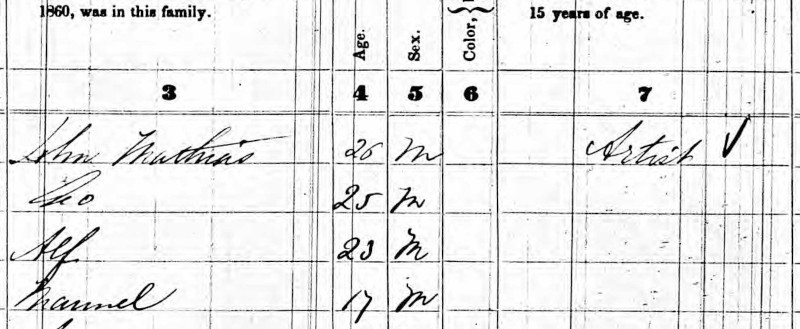 1860, was in this family.
Age.
Sex.
Color,
15 years of age.
3 4 5 6 7
John Mathias 26 m Artist ✓
Geo 25 m
Alf 23 m
17 m